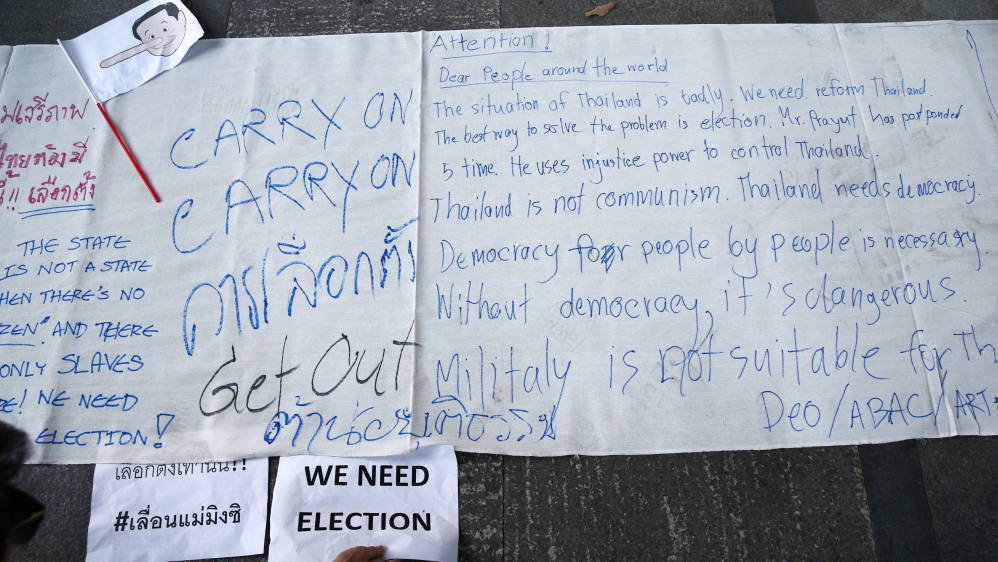 มเสรีภาพ
ไทยต้องมี
!! เลือกตั้ง
THE STATE
IS NOT A STATE
HEN THERE'S NO
ZEN" AND THERE
ONLY SLAVES
E! WE NEED
ELECTION!
CARRY ON
CARRY ON
การเลือกตั้ง
Get OUT
Attention!
Dear People around the world
The situation of Thailand is badly. We need reform Thailand.
The best way to solve the problem is election. Mr. Prayut has postponded
5 time. He uses injustice power to control Thailand.
Thailand is not communism. Thailand needs democracy.
Democracy for people by people is necessary.
Without democracy, it's dangerous.
Militaly is not suitable for Th
Deo/ABAC/ART
เลือกตั้งเท่านั้น!!
#เลื่อนแม่มิงซิ
WE NEED
ELECTION